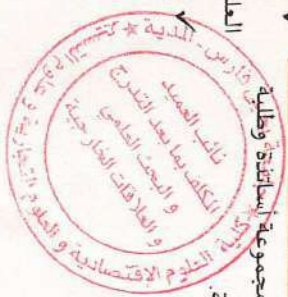 مجموعة أساتذة وطلبة
العلو
فارس - المدية ★ كلية
العلوم الاقتصادية و العلوم التجارية و علوم التسيير
نائب العميد
المكلف بما بعد التدرج
و البحث العلمي
و العلاقات الخارجية